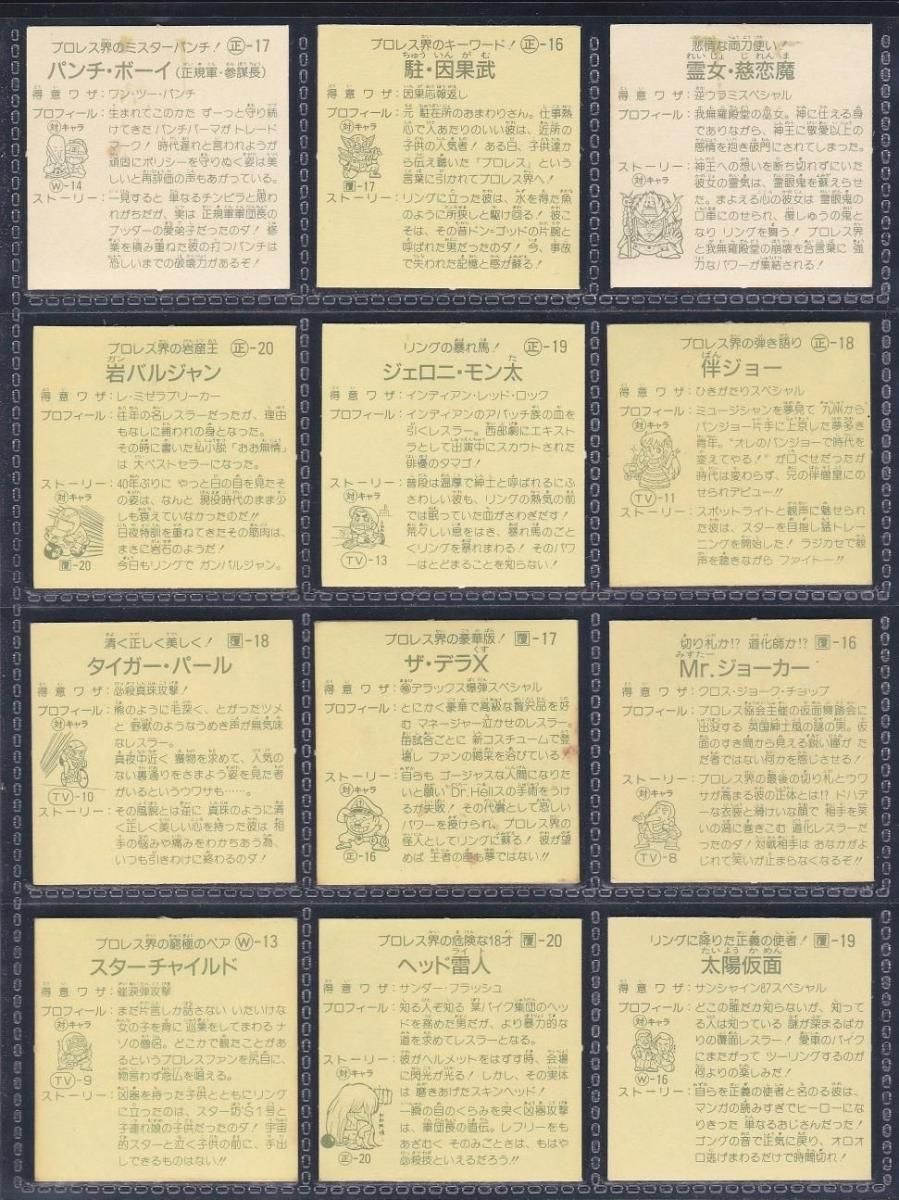 プロレス界のミスターパンチ! 正-17
パンチ・ボーイ(正規軍・参謀長)
得意ワザ:ワン・ツー・パンチ
プロフィール:生まれてこのかた ずーっと守り続
けてきた パンチパーマがトレード
マーク! 時代遅れと言われようが
頑固にポリシーを守りぬく姿は美
しいと再評価の声もあがっている。
対キャラ
W-14
ストーリー:一見すると 単なるチンピラと思わ
れがちだが、実は 正規軍軍団長の
アッダーの愛弟子だったのダ! 修
業を積み重ねた彼の打つパンチは
恐しいまでの破壊力があるぞ!
プロレス界のキーワード! 正-16
ちゅう いんがむ
駐・因果武
得意ワザ:因果応報返し
プロフィール:元 駐在所のおまわりさん。仕事熱
心で 人あたりのいい彼は、近所の
子供の人気者! ある日、子供達か
ら伝え聴いた「プロレス」という
言葉に引かれてプロレス界へ!
対キャラ
覆-17
ストーリー:リングに立った彼は、水を得た魚
のように所狭しと駆け回る! 彼こ
そは、その昔ドン・ゴッドの片腕と
呼ばれた男だったのダ! 今、事故
で失われた記憶と感が蘇る!
悲情な両刀使い!
れいじょ じれんま
霊女・慈恋魔
得意ワザ:逆ウラミスペシャル
プロフィール:我無羅殿堂の巫女。神に仕える身
でありながら、神王に敬愛以上の
感情を抱き破門にされてしまった。
ストーリー:神王への想いを断ち切れずにいた
対キャラ
彼女の霊気は、霊眼鬼を蘇えらせ
た。まよえる心の彼女は 霊眼鬼の
口車にのせられ、復しゅうの鬼と
なり リングを舞う! プロレス界
と我無羅殿堂の崩壊を合言葉に 強
力なパワーが集結される!
プロレス界の岩窟王 正-20
ガン
岩バルジャン
得意ワザ:レ・ミゼラブリーカー
プロフィール:往年の名レスラーだったが、理由
もなしに捕われの身となった。
その時に書いた私小説「おお無情」
は 大ベストセラーになった。
ストーリー:40年ぶりに やっと日の目を見たそ
対キャラ
の姿は、なんと 現役時代のまま少
しも衰えていなかったのだ!!
日夜特訓を重ねてきたその筋肉は、
まさに岩石のようだ!
覆-20
今日もリングで ガンバルジャン。
リングの暴れ馬! 正-19
た
ジェロニ・モン太
得意ワザ:インディアン・レッド・ロック
プロフィール:インディアンのアパッチ族の血を
引くレスラー。西部劇にエキスト
ラとして出演中にスカウトされた
俳優のタマゴ!
ストーリー:普段は温厚で紳士と呼ばれるにふ
対キャラ
さわしい彼も、リングの熱気の前
では眠っていた血がさわぎだす!
荒々しい息をはき、暴れ馬のごと
くリングを暴れまわる! そのパワ
TV-13
ーはとどまることを知らない!
プロレス界の弾き語り 正-18
ばん
伴ジョー
得意ワザ:ひきがたりスペシャル
プロフィール:ミュージシャンを夢見て 九州から
対キャラ
バンジョー片手に上京した夢多き
青年。“オレのバンジョーで時代を
変えてやる!”が口ぐせだったが
時代は変わらず、兄の伴個屋にの
せられデビュー!!
TV-11
ストーリー:スポットライトと観声に魅せられ
た彼は、スターを目指し猛トレー
ニングを開始した! ラジカセで観
声を聴きながら ファイトー!!
清く正しく美しく! 覆-18
タイガー・パール
得意ワザ:必殺真珠攻撃!
プロフィール:熊のように毛深く、とがったツメ
対キャラ
と 野獣のようなうめき声が無気味
なレスラー。
真夜中近く 獲物を求めて、人気の
ない裏通りをさまよう姿を見た者
がいるというウワサも……。
TV-10
ストーリー:その風貌とは逆に 真珠のように清
く正しく美しい心を持った彼は 相
手の悩みや痛みをわかちあう為、
いつも引きわけに終わるのダ!
プロレス界の豪華版! 覆-17
くす
ザ・デラX
得意ワザ:デラックス爆弾スペシャル
プロフィール:とにかく豪華で高級な贅沢品を好
む マネージャー泣かせのレスラー。
毎試合ごとに 新コスチュームで登
場し ファンの喝采を浴びている!
ストーリー:自らも ゴージャスな人間になりた
対キャラ
いと願い Dr.Hellスの手術をうけ
るが失敗! その代償として恐しい
パワーを授けられ、プロレス界の
怪人としてリングに蘇る! 彼が望
正-16
めば 王者の座も夢ではない!!
切り札か!? 道化師か!? 覆-16
みすたー
Mr.ジョーカー
得意ワザ:クロス・ジョーク・チョップ
プロフィール:プロレス協会主催の仮面舞踏会に
出没する 英国紳士風の謎の男。仮
面のすき間から見える鋭い瞳が た
だ者ではない何かを感じさせる!
ストーリー:プロレス界の最後の切り札とウワサ
対キャラ
が高まる彼の正体とは!? ドハデ
な衣装と薄けいな顔で 相手を笑
いの渦に巻きこむ 道化レスラーだ
ったのダ! 対戦相手は おなかがよ
TV-8
じれて笑いが止まらなくなるぞ!!
プロレス界の窮極のペア W-13
スターチャイルド
得意ワザ:催涙弾攻撃
プロフィール:まだ片言しか話さない いたいけな
対キャラ
女の子を背に 巡業をしてまわる ナ
ゾの僧侶。どこかで観たことがあ
るというプロレスファンを尻目に、
物言わず念仏を唱える。
TV-9
ストーリー:凶器を持った子供とともにリング
に立ったのは、スター坊S1号と
子連れ娘の子供だったのダ! 宇宙
的スターと泣く子供の前に、手出
しできるものはない!!
プロレス界の危険な18才 覆-20
ライト
ヘッド雷人
得意ワザ:サンダー・フラッシュ
プロフィール:知る人ぞ知る 某バイク集団のヘッ
ドを務めた男だが、より暴力的な
道を求めてレスラーとなる。
ストーリー:彼がヘルメットをはずす時、会場
対キャラ
に閃光が光る! しかし、その実体
は 磨きあげたスキンヘッド!
一瞬の目のくらみを突く凶器攻撃
は、軍団長の直伝。レフリーをも
あざむく そのみごとさは、もはや
正-20
必殺技といえるだろう!!
リングに降りた正義の使者! 覆-19
たいようかめん
太陽仮面
得意ワザ:サンシャイン87スペシャル
プロフィール:どこの誰だか知らないが、知って
対キャラ
る人は知っている 謎が深まるばか
りの覆面レスラー! 愛車のバイク
にまたがって ツーリングするのが
何よりの楽しみだ!
W-16
ストーリー:自らを正義の使者と名のる彼は、
マンガの読みすぎでヒーローにな
りきった 単なるおじさんだった!
ゴングの音で正気に戻り、オロオロ
逃げまわるだけで時間切れ!